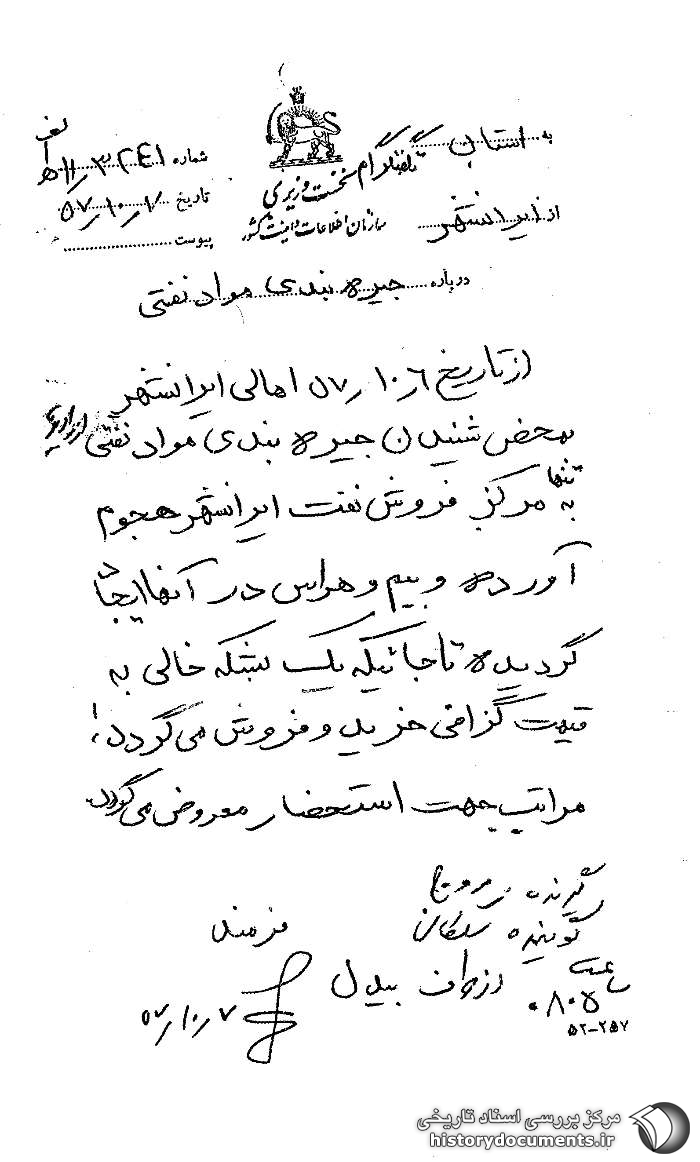 تلفنگرام
نخست وزیری
سازمان اطلاعات و امنیت کشور
به استان
از ایرانشهر
شماره ۳۲۴۱
تاریخ ۵۷٫۱۰٫۷
پیوست
درباره جیره بندی مواد نفتی
از تاریخ ۵۷٫۱۰٫۶ اهالی ایرانشهر
بمحض شنیدن جیره بندی مواد نفتی
به تنها مرکز فروش نفت ایرانشهر هجوم
آورده و بیم و هراس در آنها ایجاد
گردیده تا جائیکه یک بشکه خالی به
قیمت گزافی خرید و فروش می گردد،
مراتب جهت استحضار معروض می گردد
گیرنده
گوینده سلطانی
ساعت ۰۸۰۵
۵۲-۲۵۷
۵۷٫۱۰٫۷
مرکز بررسی اسناد تاریخی
historydocuments.ir